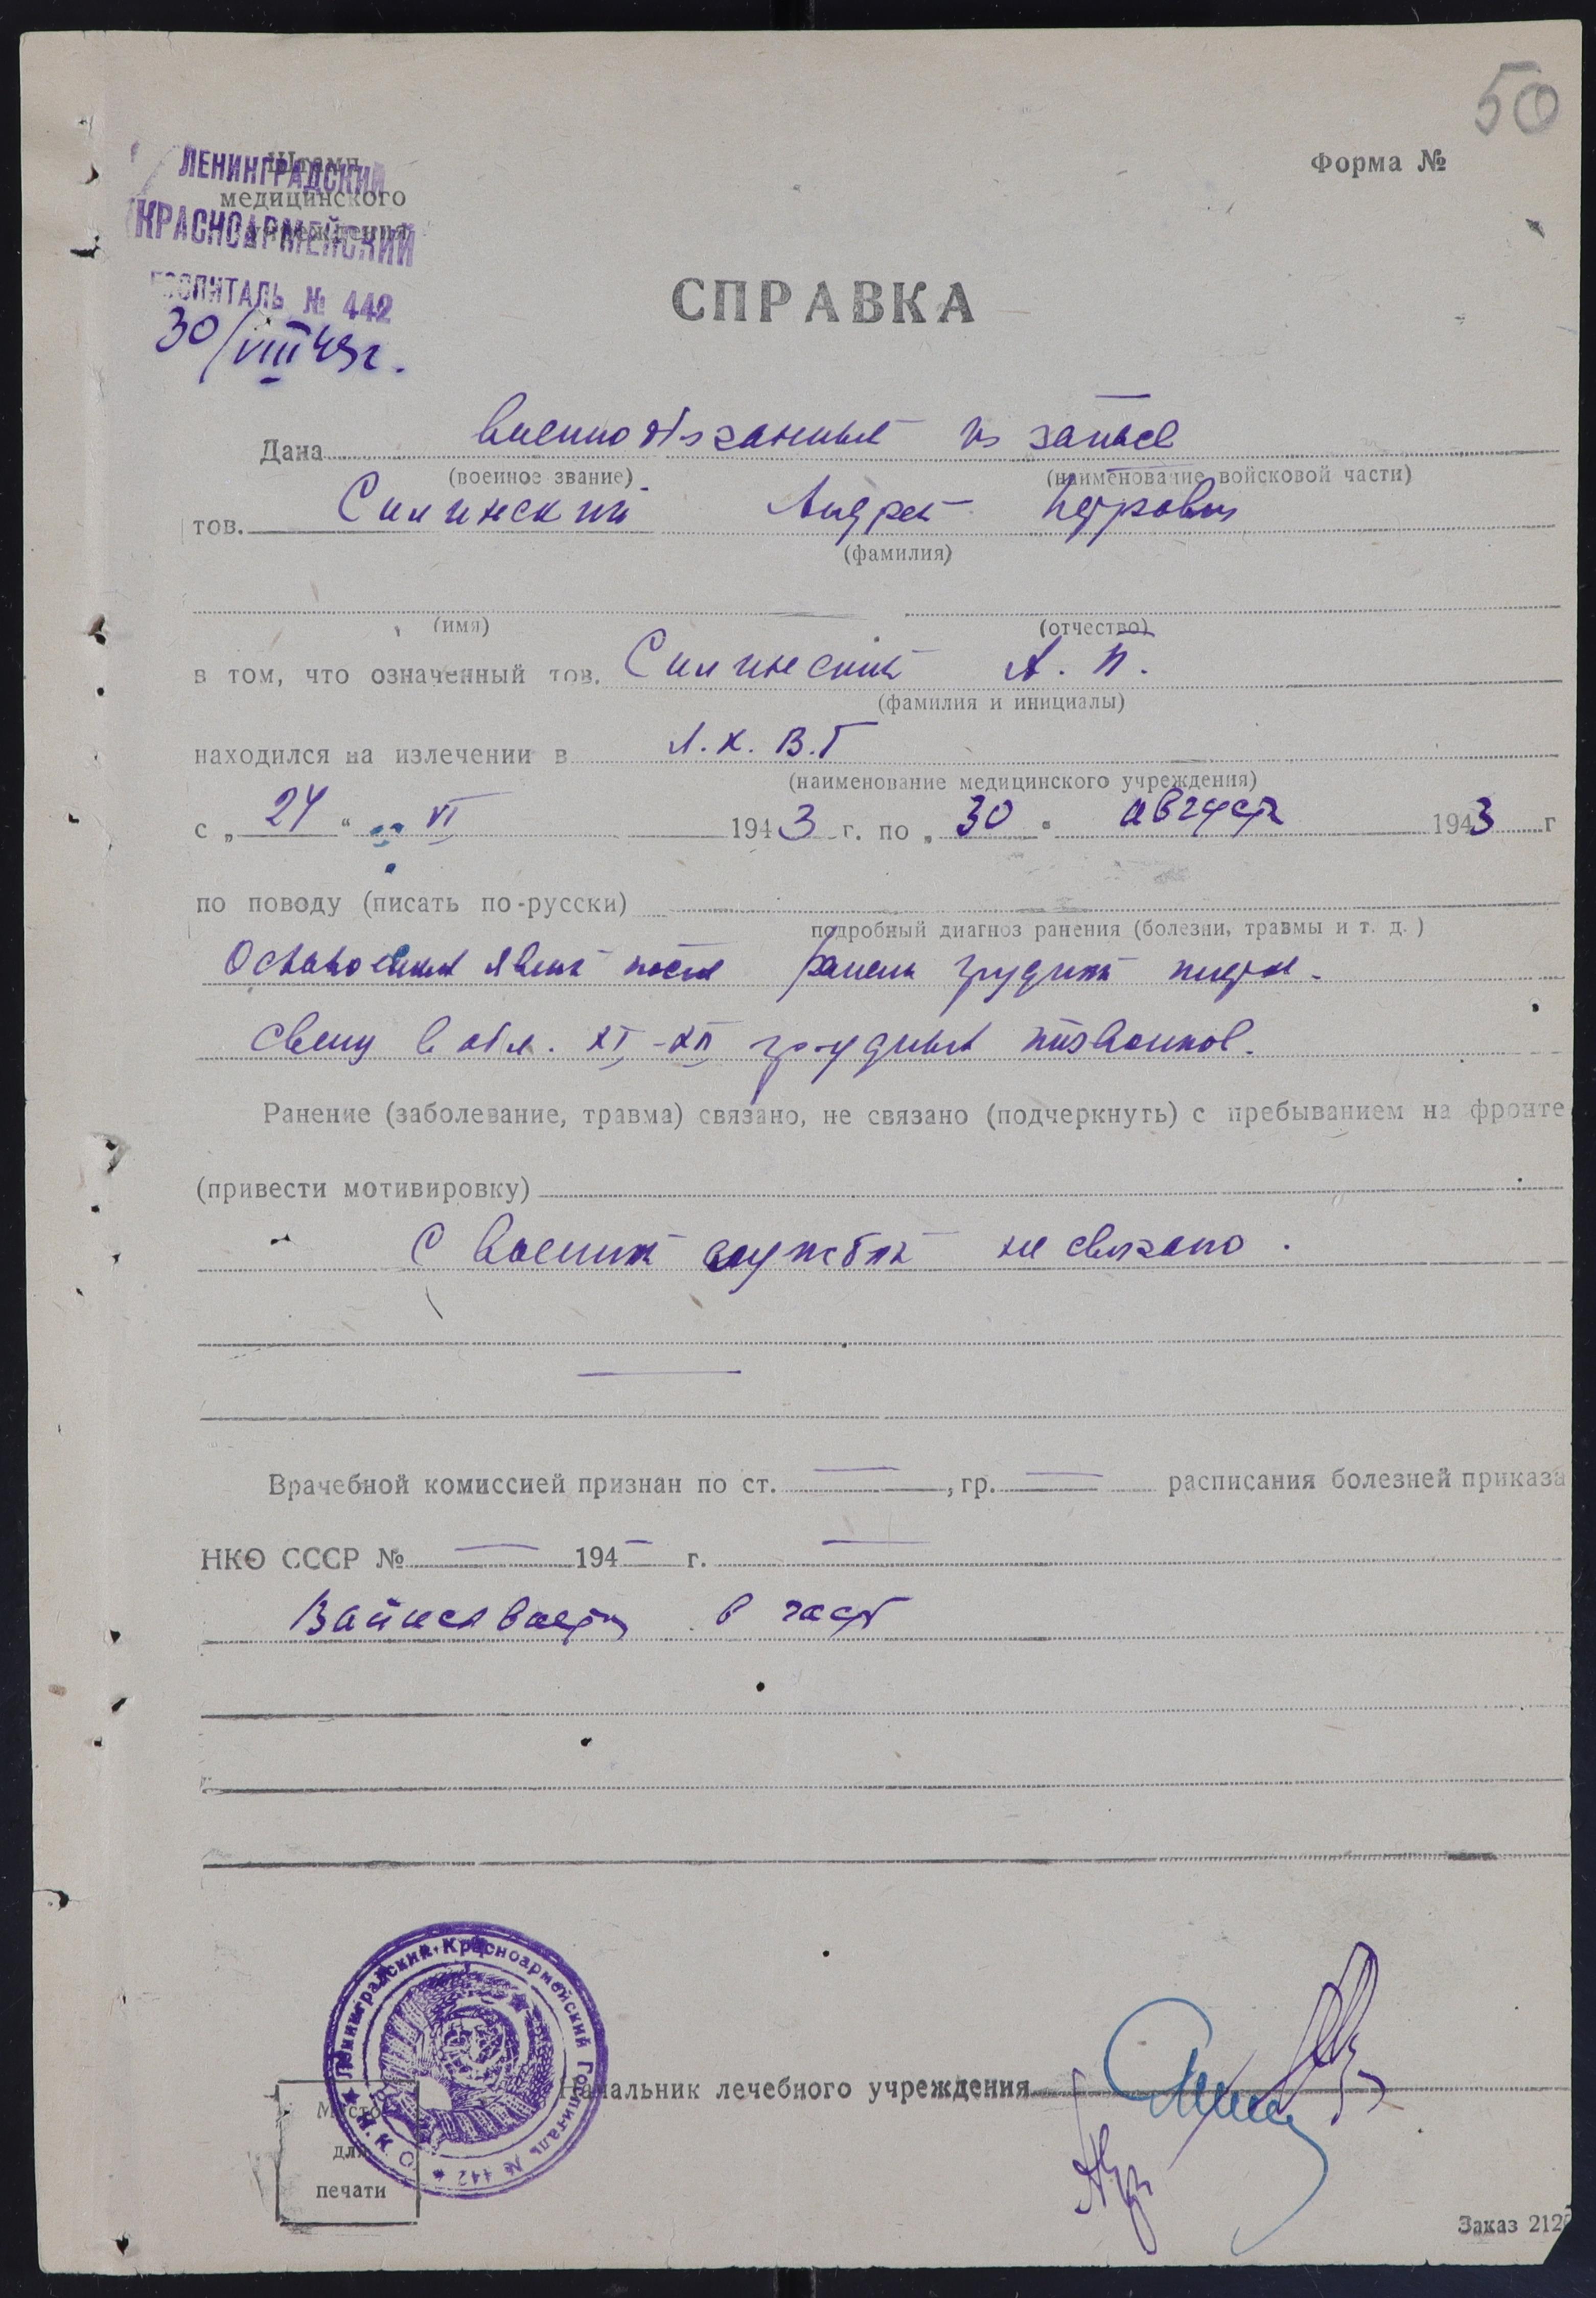 50
Форма №
Штамп
медицинского
учреждения
ЛЕНИНГРАДСКИЙ
КРАСНОАРМЕЙСКИЙ
ГОСПИТАЛЬ № 442
30/VIII 43г.
СПРАВКА
Дана военнообязанный из запаса
(военное звание) (наименование войсковой части)
тов. Силинский Андрей Петрович
(фамилия)
(имя) (отчество)
в том, что означенный тов. Силинский А. П.
(фамилия и инициалы)
находился на излечении в Л.К. В.Г
(наименование медицинского учреждения)
с „24“ VI 1943 г. по „30“ августа 1943 г
по поводу (писать по-русски)
подробный диагноз ранения (болезни, травмы и т. д.)
после грудной
в обл. XI-XII грудных позвонков.
Ранение (заболевание, травма) связано, не связано (подчеркнуть) с пребыванием на фронте
(привести мотивировку)
С военной службой не связано.
Врачебной комиссией признан по ст. — , гр. — расписания болезней приказа
НКО СССР № — 194— г. —
в часть
Ленинградский Красноармейский Госпиталь № 442 * Н.К.О.
Место
для
печати
Начальник лечебного учреждения
Заказ 212